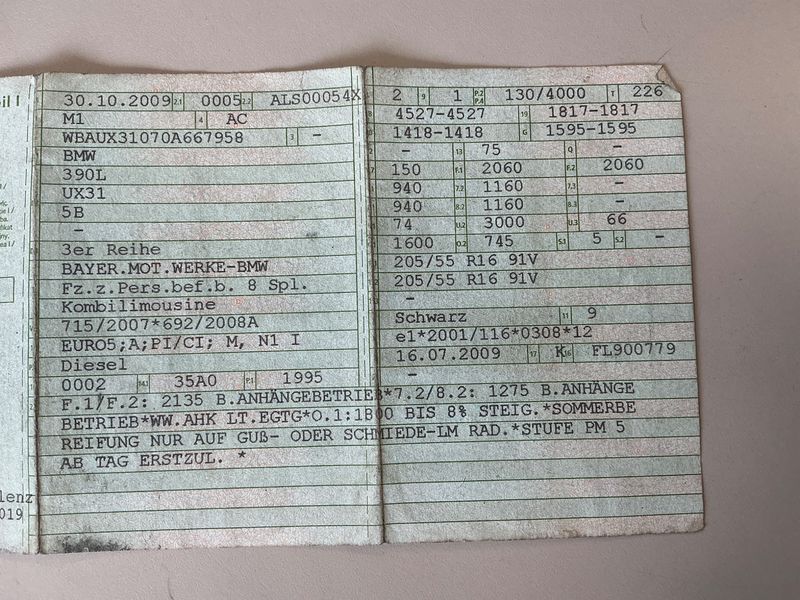 30.10.2009 2.1 0005 2.2 ALS00054X
M1 4 AC
WBAUX31070A667958 3 -
BMW
390L
UX31
5B
-
3er Reihe
BAYER.MOT.WERKE-BMW
Fz.z.Pers.bef.b. 8 Spl.
Kombilimousine
715/2007*692/2008A
EURO5;A;PI/CI; M, N1 I
Diesel
0002 14.1 35A0 P.1 1995
2 9 1 P.2 P.4 130/4000 T 226
4527-4527 19 1817-1817
1418-1418 G 1595-1595
- 13 75 Q -
150 F.1 2060 F.2 2060
940 7.2 1160 7.3 -
940 8.2 1160 8.3 -
74 U.2 3000 U.3 66
1600 O.2 745 S.1 5 S.2 -
205/55 R16 91V
205/55 R16 91V
-
Schwarz 11 9
e1*2001/116*0308*12
16.07.2009 17 K 16 FL900779
-
F.1/F.2: 2135 B.ANHÄNGEBETRIEB*7.2/8.2: 1275 B.ANHÄNGE
BETRIEB*WW.AHK LT.EGTG*O.1:1800 BIS 8% STEIG.*SOMMERBE
REIFUNG NUR AUF GUß- ODER SCHMIEDE-LM RAD.*STUFE PM 5
AB TAG ERSTZUL. *
lenz
019